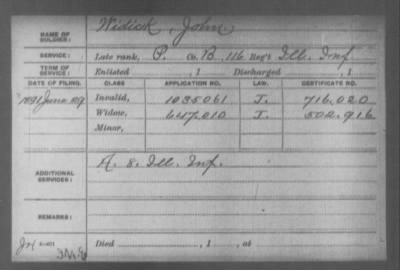 NAME OF SOLDIER: Widick, John
SERVICE: Late rank, P. Co. B, 116 Reg't Ill. Inf.
TERM OF SERVICE: Enlisted , 1 Discharged , 1
DATE OF FILING. CLASS APPLICATION NO. LAW. CERTIFICATE NO.
1891 June Invalid, 1035061 J. 716.020
Widow, 647.010 J. 502.916
Minor,
ADDITIONAL SERVICES: A. 8. Ill. Inf.
REMARKS:
Died , 1 , at